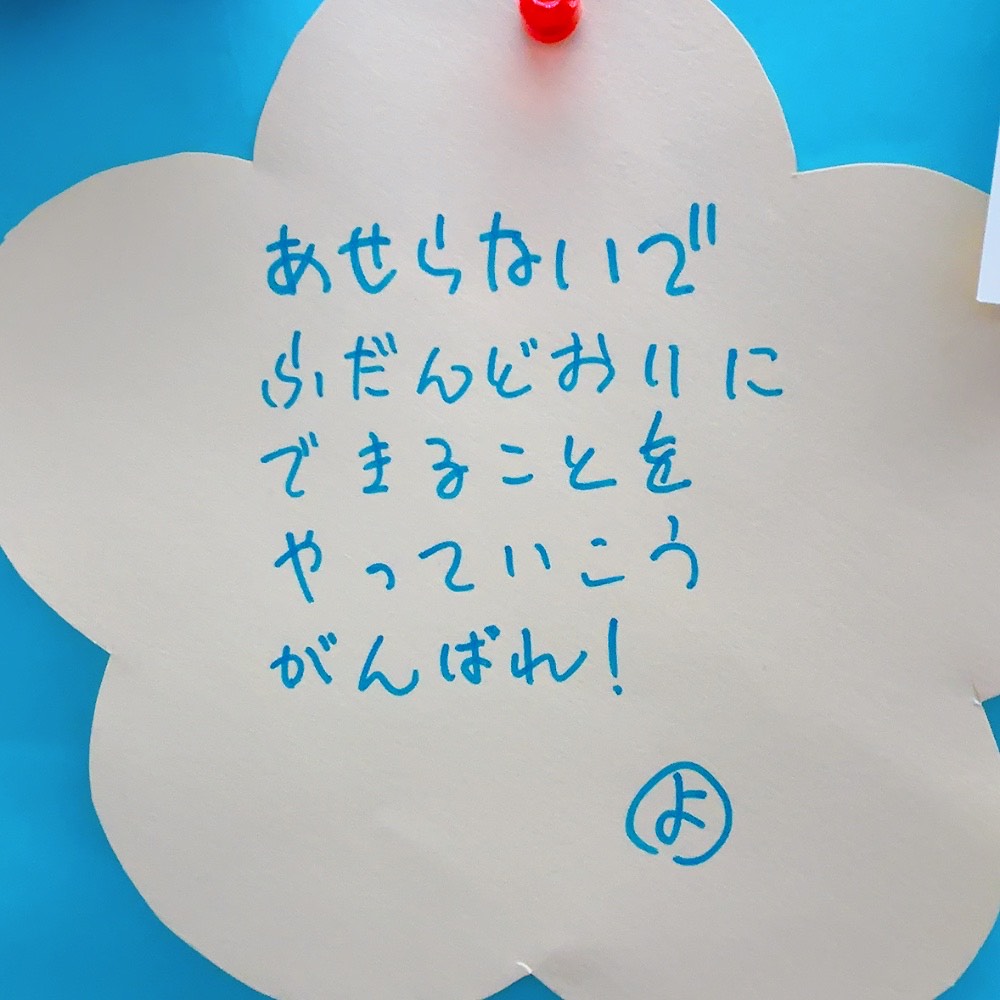 あせらないで
ふだんどおりに
できることを
やっていこう
がんばれ!
よ